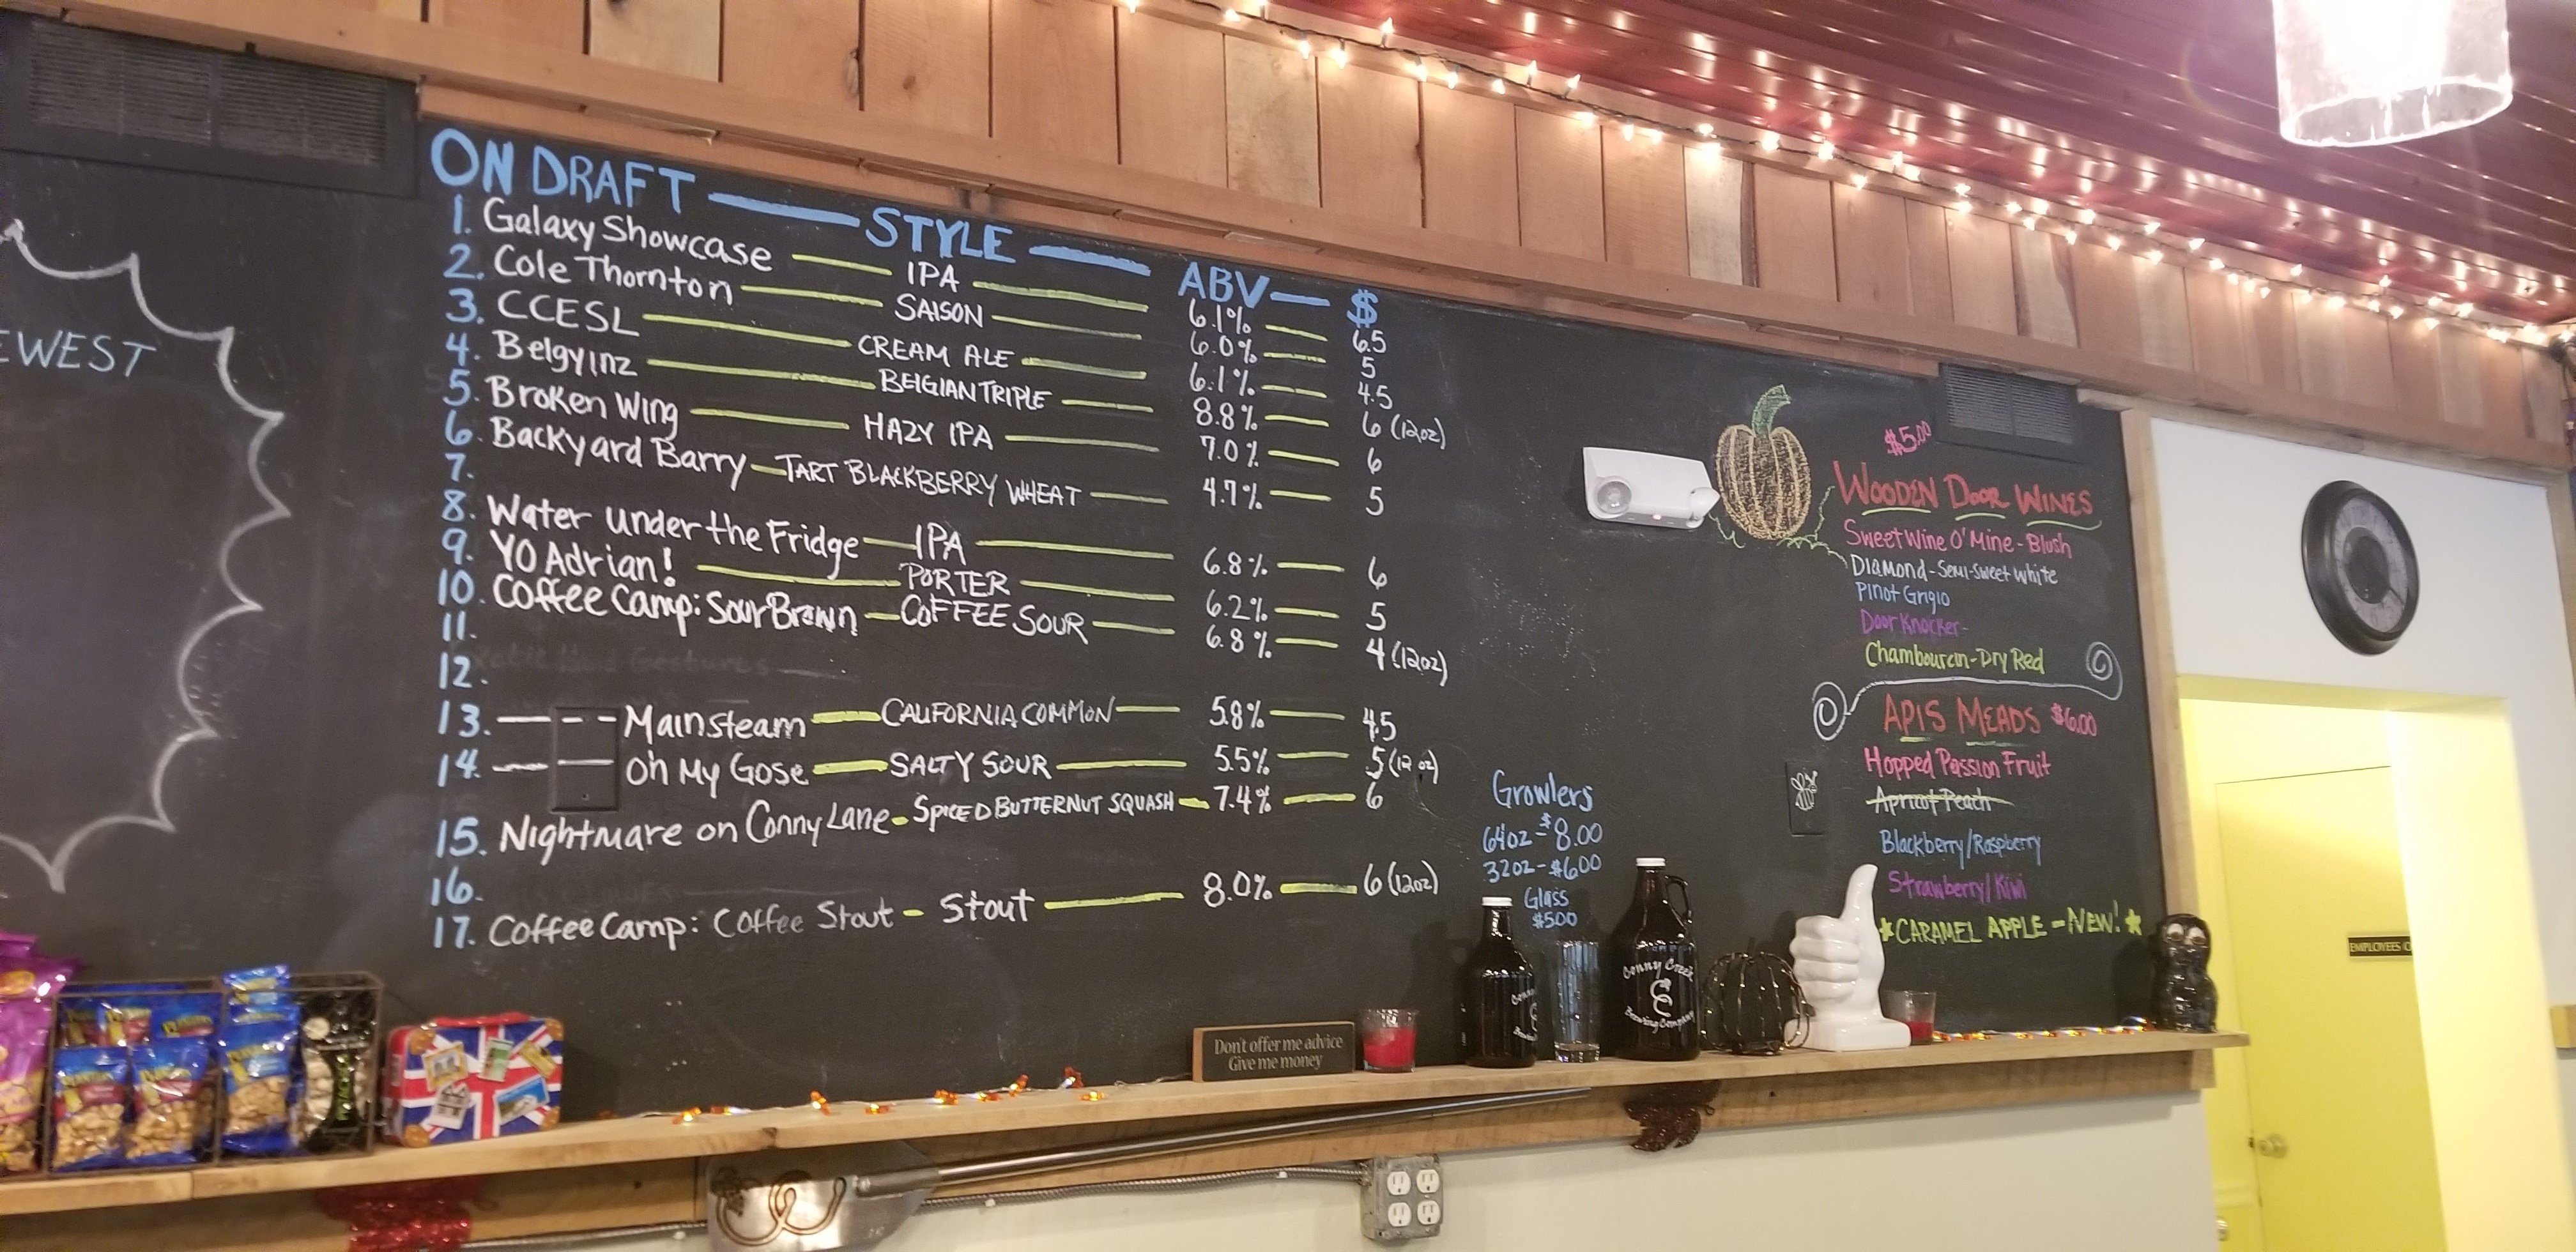 EWEST
ON DRAFT STYLE ABV $
1. Galaxy Showcase IPA 6.1% 6.5
2. Cole Thornton SAISON 6.0% 5
3. CCESL CREAM ALE 6.1% 4.5
4. Belgyinz BELGIAN TRIPLE 8.8% 6 (12oz)
5. Broken Wing HAZY IPA 7.0% 6
6. Backyard Barry TART BLACKBERRY WHEAT 4.7% 5
7.
8. Water Under the Fridge IPA 6.8% 6
9. YO Adrian! PORTER 6.2% 5
10. Coffee Camp: Sour Brown COFFEE SOUR 6.8% 4 (12oz)
11.
12.
13. Mainsteam CALIFORNIA COMMON 5.8% 4.5
14. Oh My Gose SALTY SOUR 5.5% 5 (12 oz)
15. Nightmare on Conny Lane - SPICED BUTTERNUT SQUASH 7.4% 6
16.
17. Coffee Camp: Coffee Stout - Stout 8.0% 6 (12oz)
Growlers
64oz - $8.00
32oz - $6.00
Glass
$5.00
$5.00
WOODEN DOOR WINES
Sweet Wine O' Mine - Blush
DIAMOND - Semi-Sweet White
Pinot Grigio
Door Knocker -
Chambourcin - Dry Red
APIS MEADS $6.00
Hopped Passion Fruit
Apricot Peach
Blackberry/Raspberry
Strawberry/Kiwi
CARAMEL APPLE - NEW!
Don't offer me advice
Give me money
Conny Creek
Brewing Company
EMPLOYEES